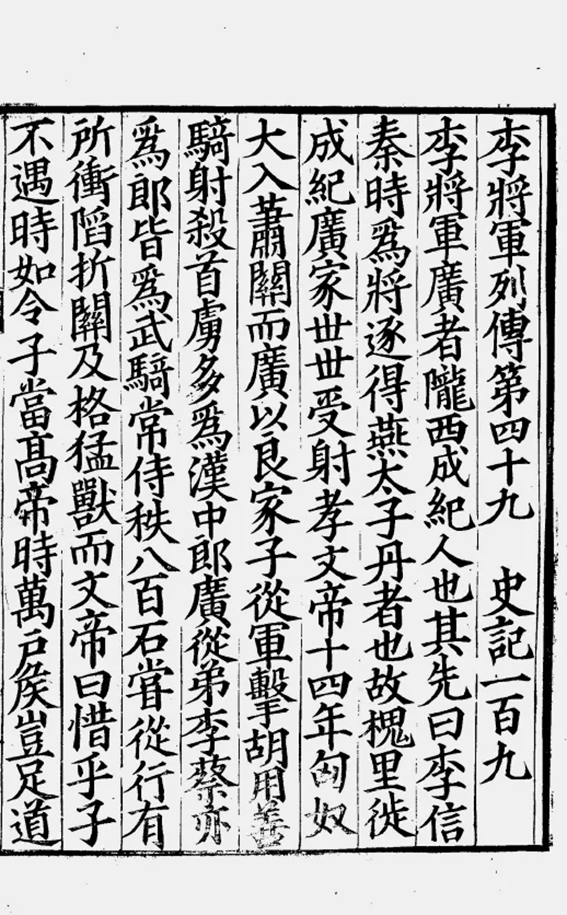 李將軍列傳第四十九　史記一百九
李將軍廣者隴西成紀人也其先曰李信
秦時爲將逐得燕太子丹者也故槐里徙
成紀廣家世世受射孝文帝十四年匈奴
大入蕭關而廣以良家子從軍擊胡用善
騎射殺首虜多爲漢中郎廣從弟李蔡亦
爲郎皆爲武騎常侍秩八百石嘗從行有
所衝陷折關及格猛獸而文帝曰惜乎子
不遇時如令子當高帝時萬戶侯豈足道